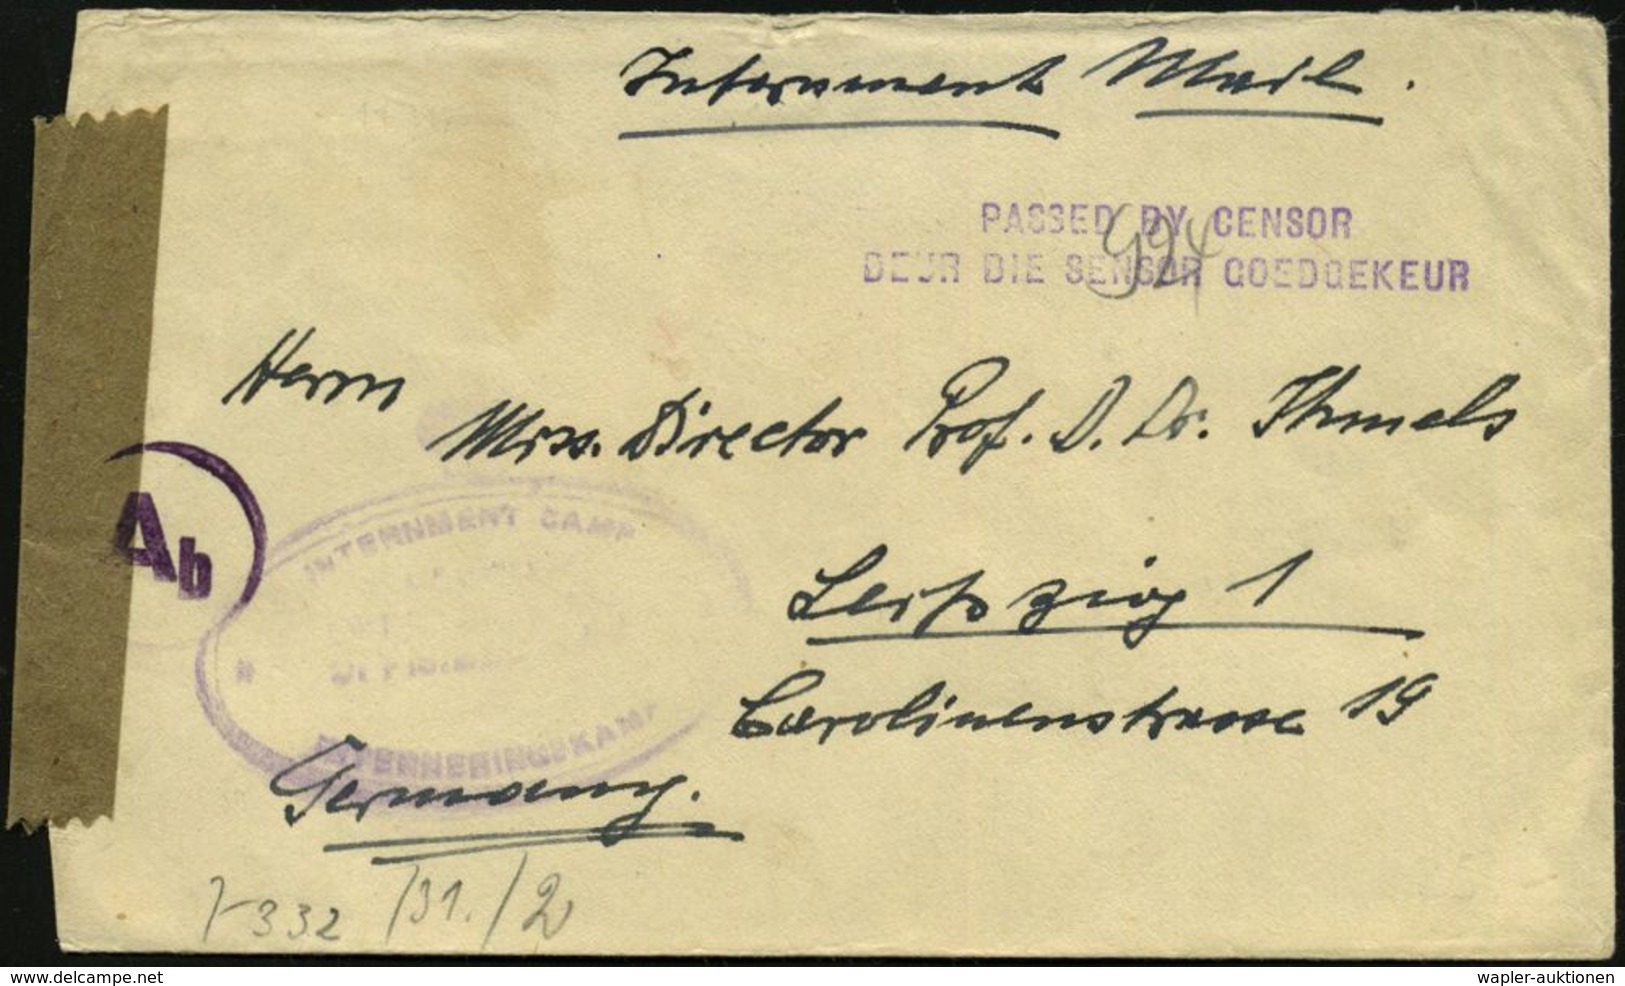 Internment Mail.
PASSED BY CENSOR
DEUR DIE SENSOR GOEDGEKEUR
924
Herrn
Miss. Director Prof. D. Dr. Ihmels
Ab
INTERNMENT CAMP
INTERNEERINGSKAMP
Leipzig 1
Carolinenstrasse 19
Germany.
332 /31./2
www.delcampe.net
wapler-auktionen